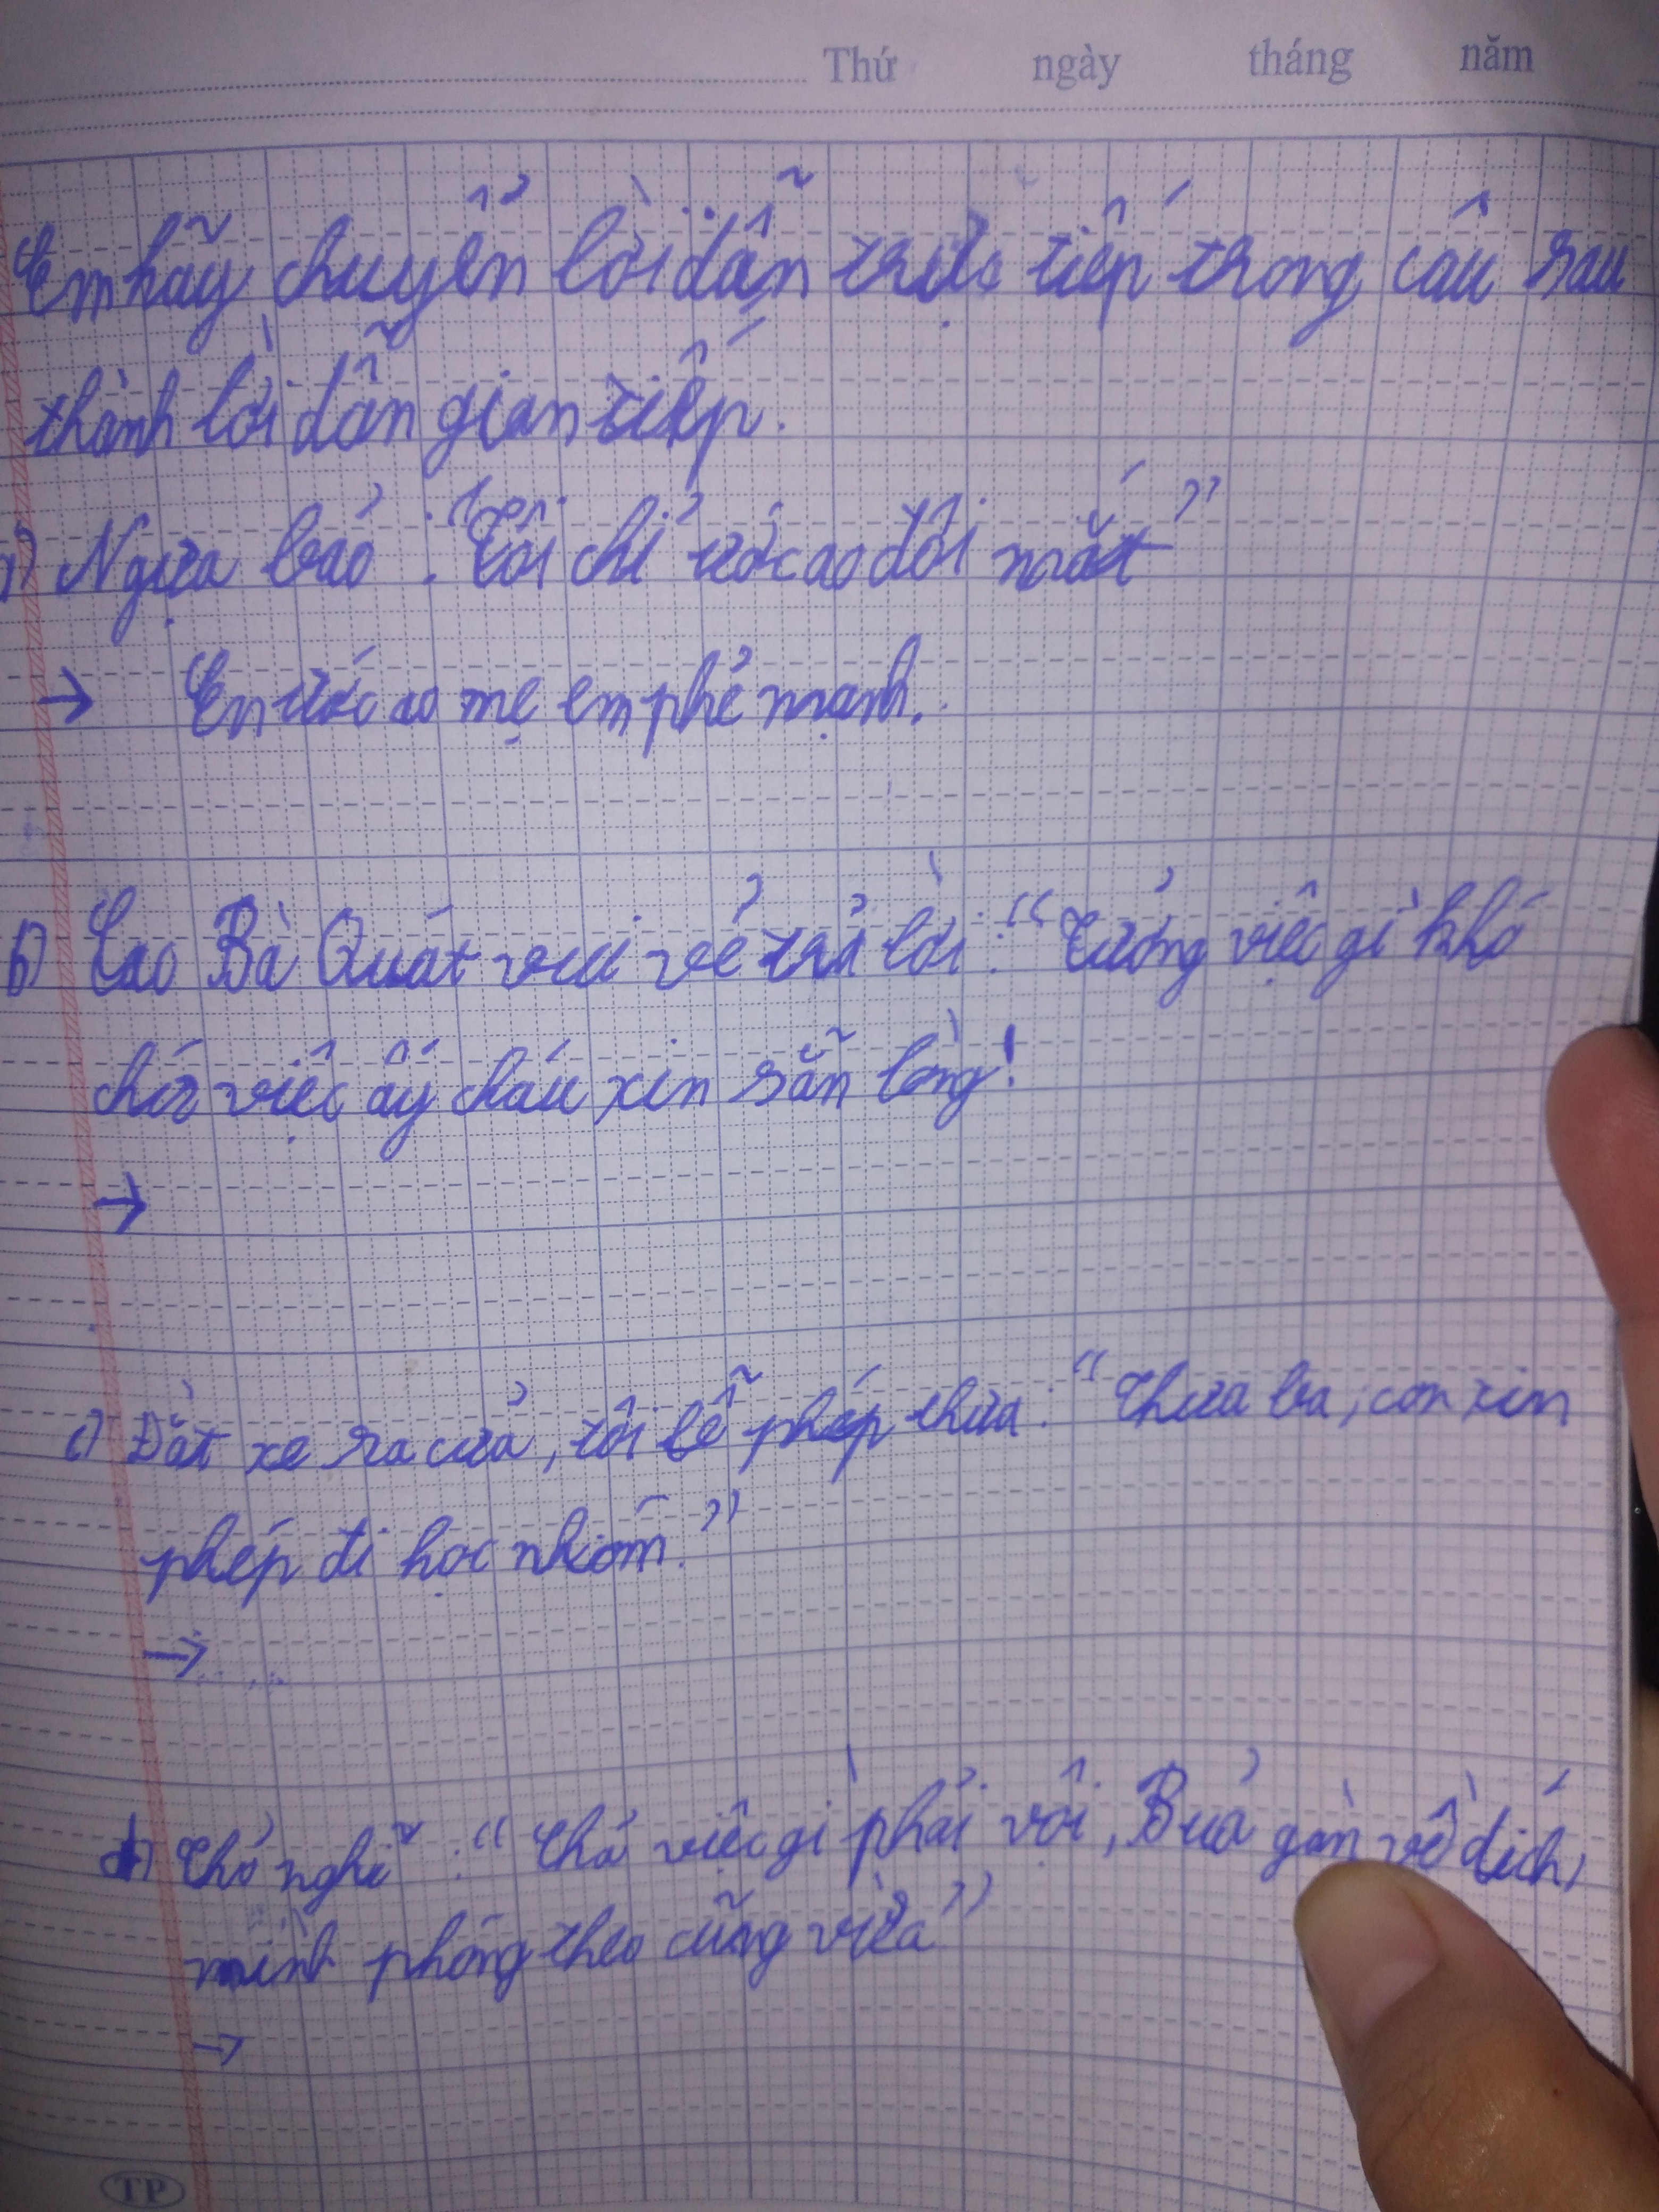 Thứ ngày tháng năm
Em hãy chuyển lời dẫn trực tiếp trong câu sau
thành lời dẫn gián tiếp.
a) Ngựa bảo : "Tôi chỉ ước ao đôi mắt"
→ Em ước ao mẹ em phẻ mạnh.
b) Cao Bà Quát vui vẻ trả lời : "Tưởng việc gì khó
chứ việc ấy cháu xin sẵn lòng!
→
c) Dắt xe ra cửa, tôi lễ phép thưa : "Thưa ba, con xin
phép đi học nhóm."
→
d) Thỏ nghĩ : "Chả việc gì phải vội, Bưả gần về đích,
mình phóng theo cũng vừa"
→
TP